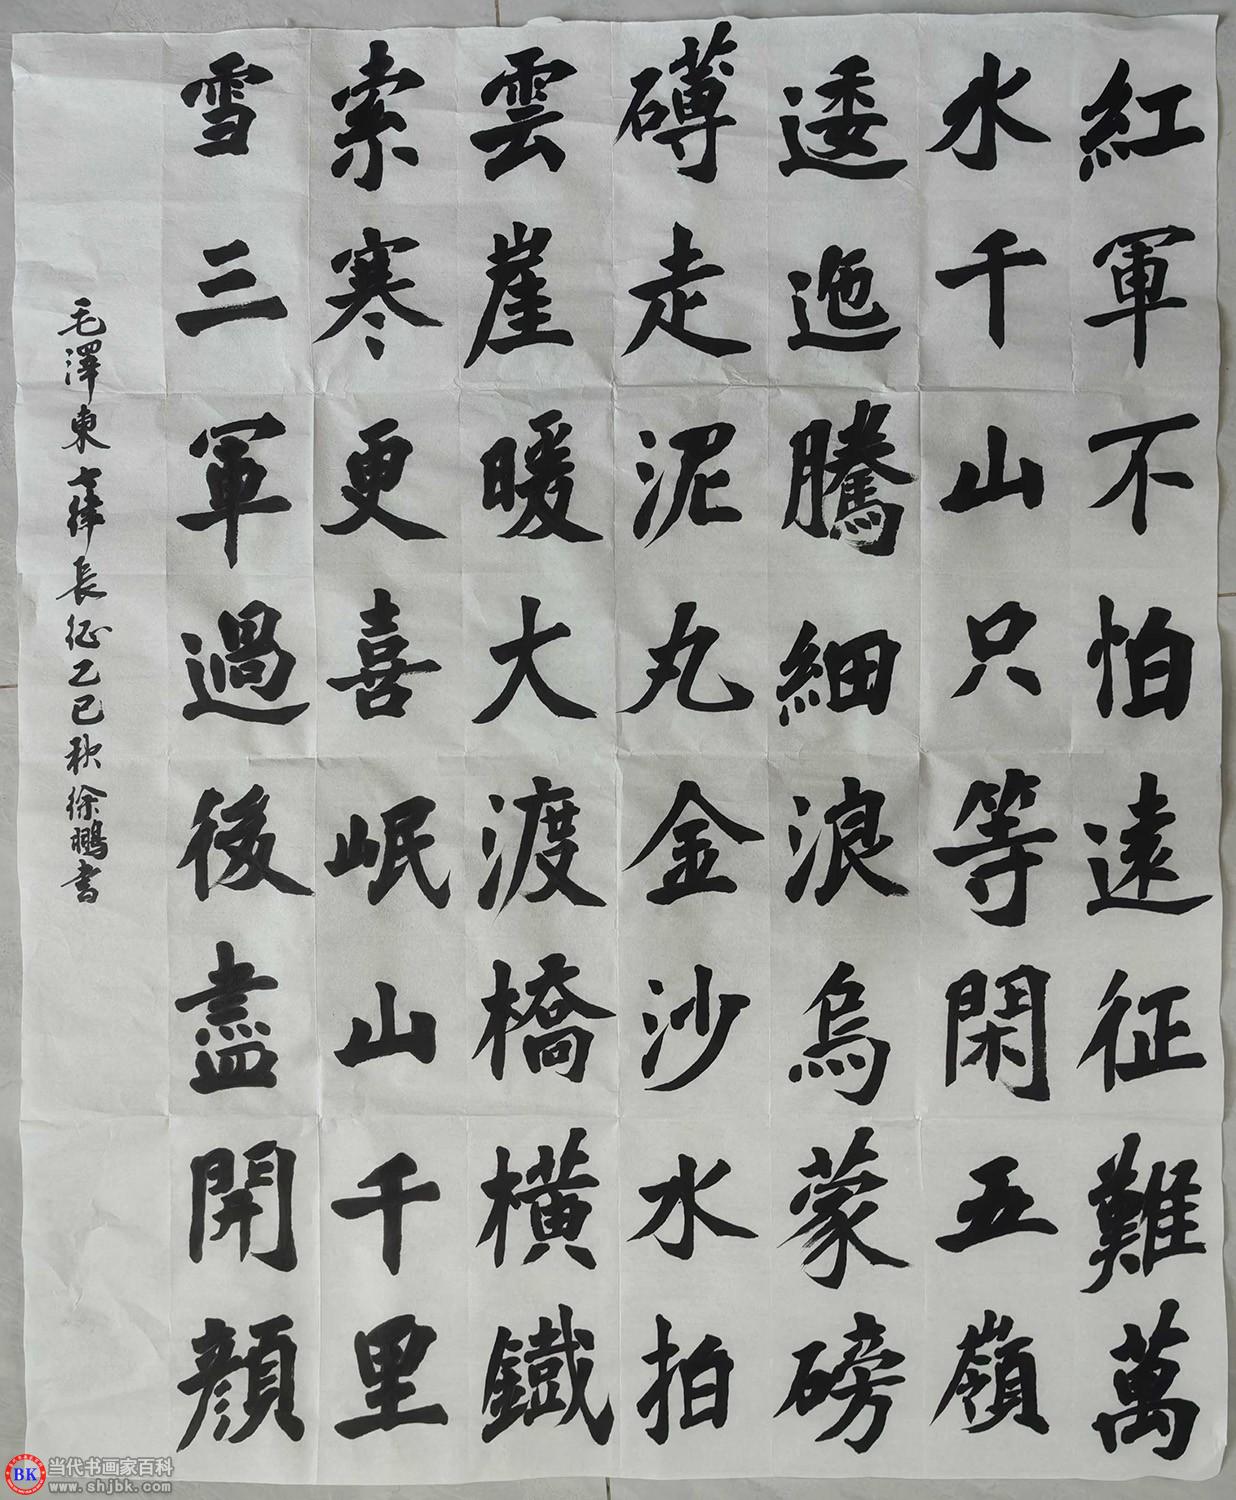 紅軍不怕遠征難萬
水千山只等閑五嶺
逶迤騰細浪烏蒙磅
礴走泥丸金沙水拍
雲崖暖大渡橋橫鐵
索寒更喜岷山千里
雪三軍過後盡開顔
毛澤東七律長征乙巳秋徐鵬書
BK
当代书画家百科
www.shjbk.com